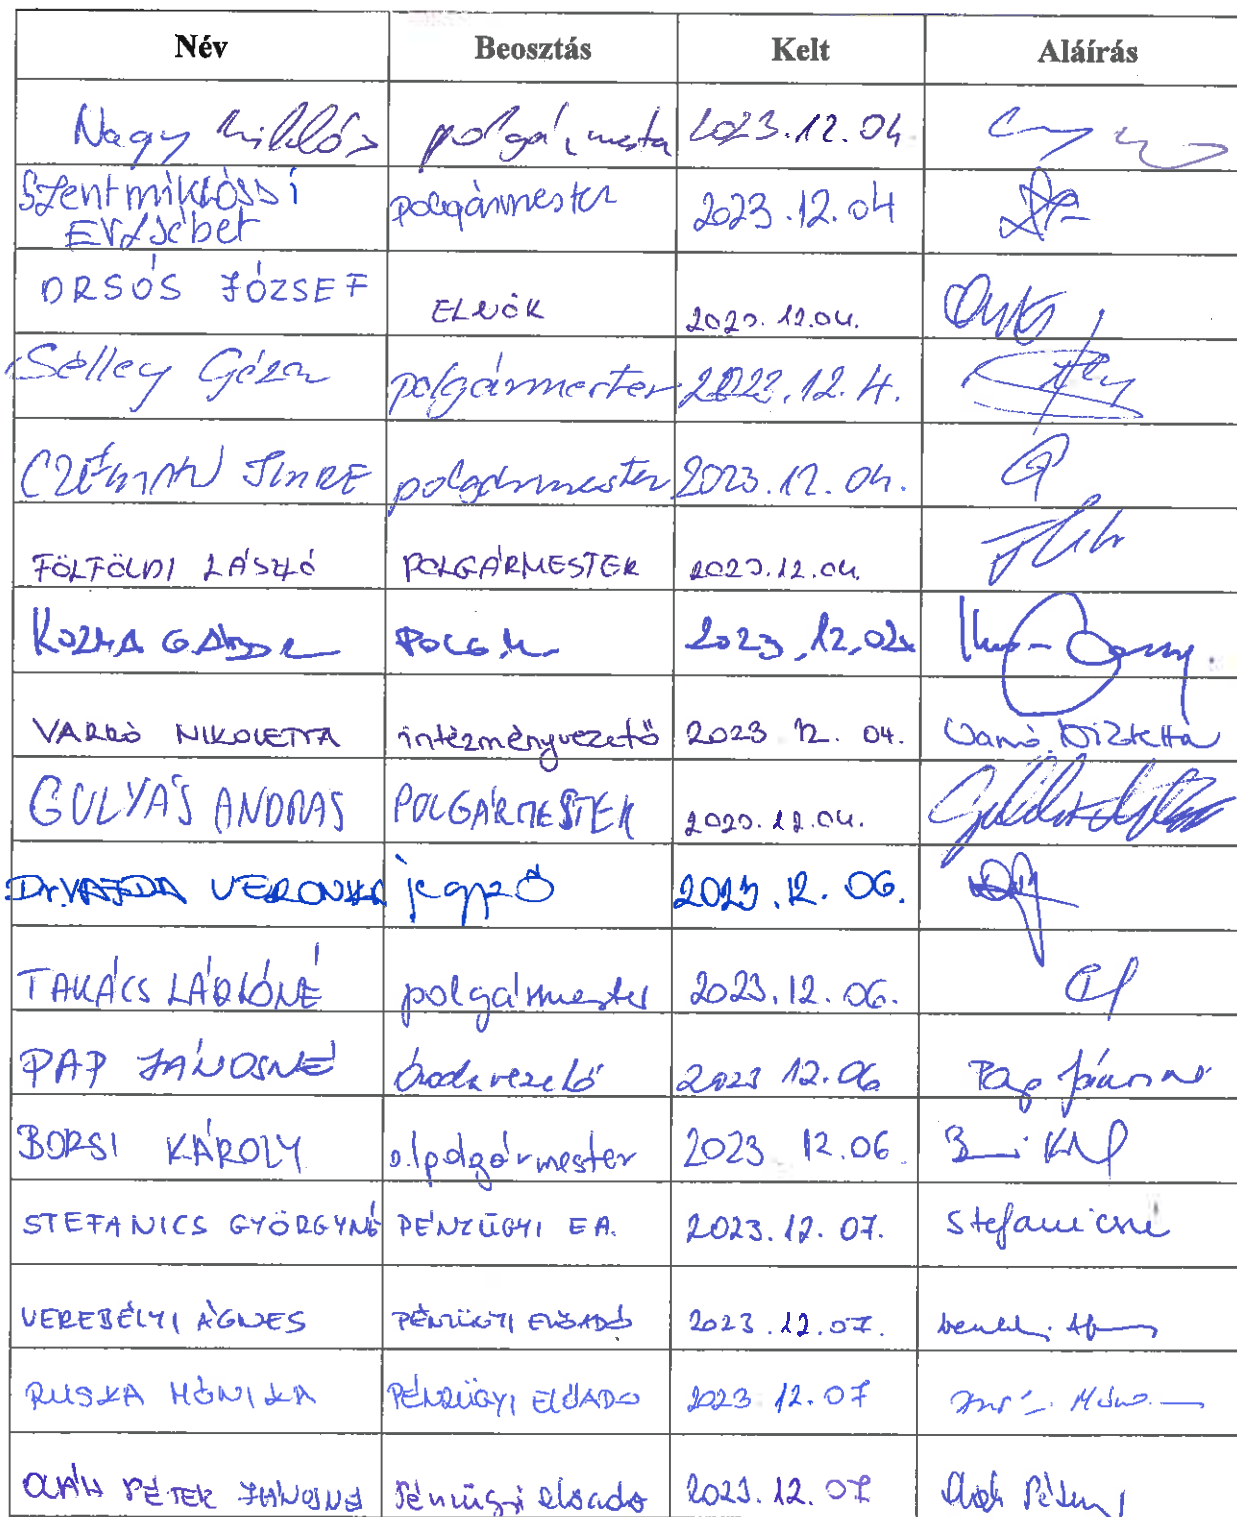 Név Beosztás Kelt Aláírás
Nagy Miklós polgármester 2023.12.04
Szentmiklóssi polgármester 2023.12.04
Erzsébet
ORSÓS JÓZSEF ELNÖK 2023.12.04.
Sélley Géza polgármester 2023.12.4.
CZÉMÁN IMRE polgármester 2023.12.04.
FÖLFÖLDI LÁSZLÓ POLGÁRMESTER 2023.12.04.
KOZMA GÁBOR POLG.M. 2023.12.04
VARRÓ NIKOLETTA intézményvezető 2023 12. 04. Varró Nikoletta
GULYÁS ANDRÁS POLGÁRMESTER 2023.12.04.
Dr.VAJDA VERONIKA jegyző 2023.12.06.
TAKÁCS LÁSZLÓNÉ polgármester 2023.12.06.
PAP JÁNOSNÉ óvodavezető 2023 12.06 Pap Jánosné
BORSI KÁROLY alpolgármester 2023 12.06
STEFANICS GYÖRGYNÉ PÉNZÜGYI EA. 2023.12.07. Stefanicsné
VEREBÉLYI ÁGNES PÉNZÜGYI ELŐADÓ 2023.12.07.
RUSKA MÓNIKA PÉNZÜGYI ELŐADÓ 2023.12.07
OLÁH PÉTER JÁNOSNÉ Pénzügyi előadó 2023.12.07